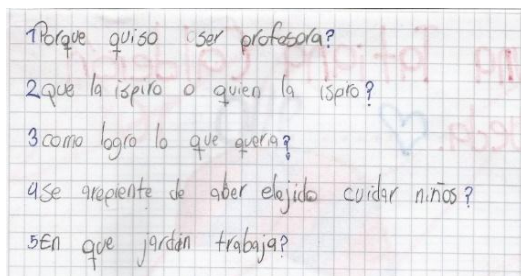 1Porque quiso ser profesora?
2que la ispiro o quien la ispiro?
3 como logro lo que queria?
4se arepiente de aber elejido cuidar niños?
5En que jardin trabaja?